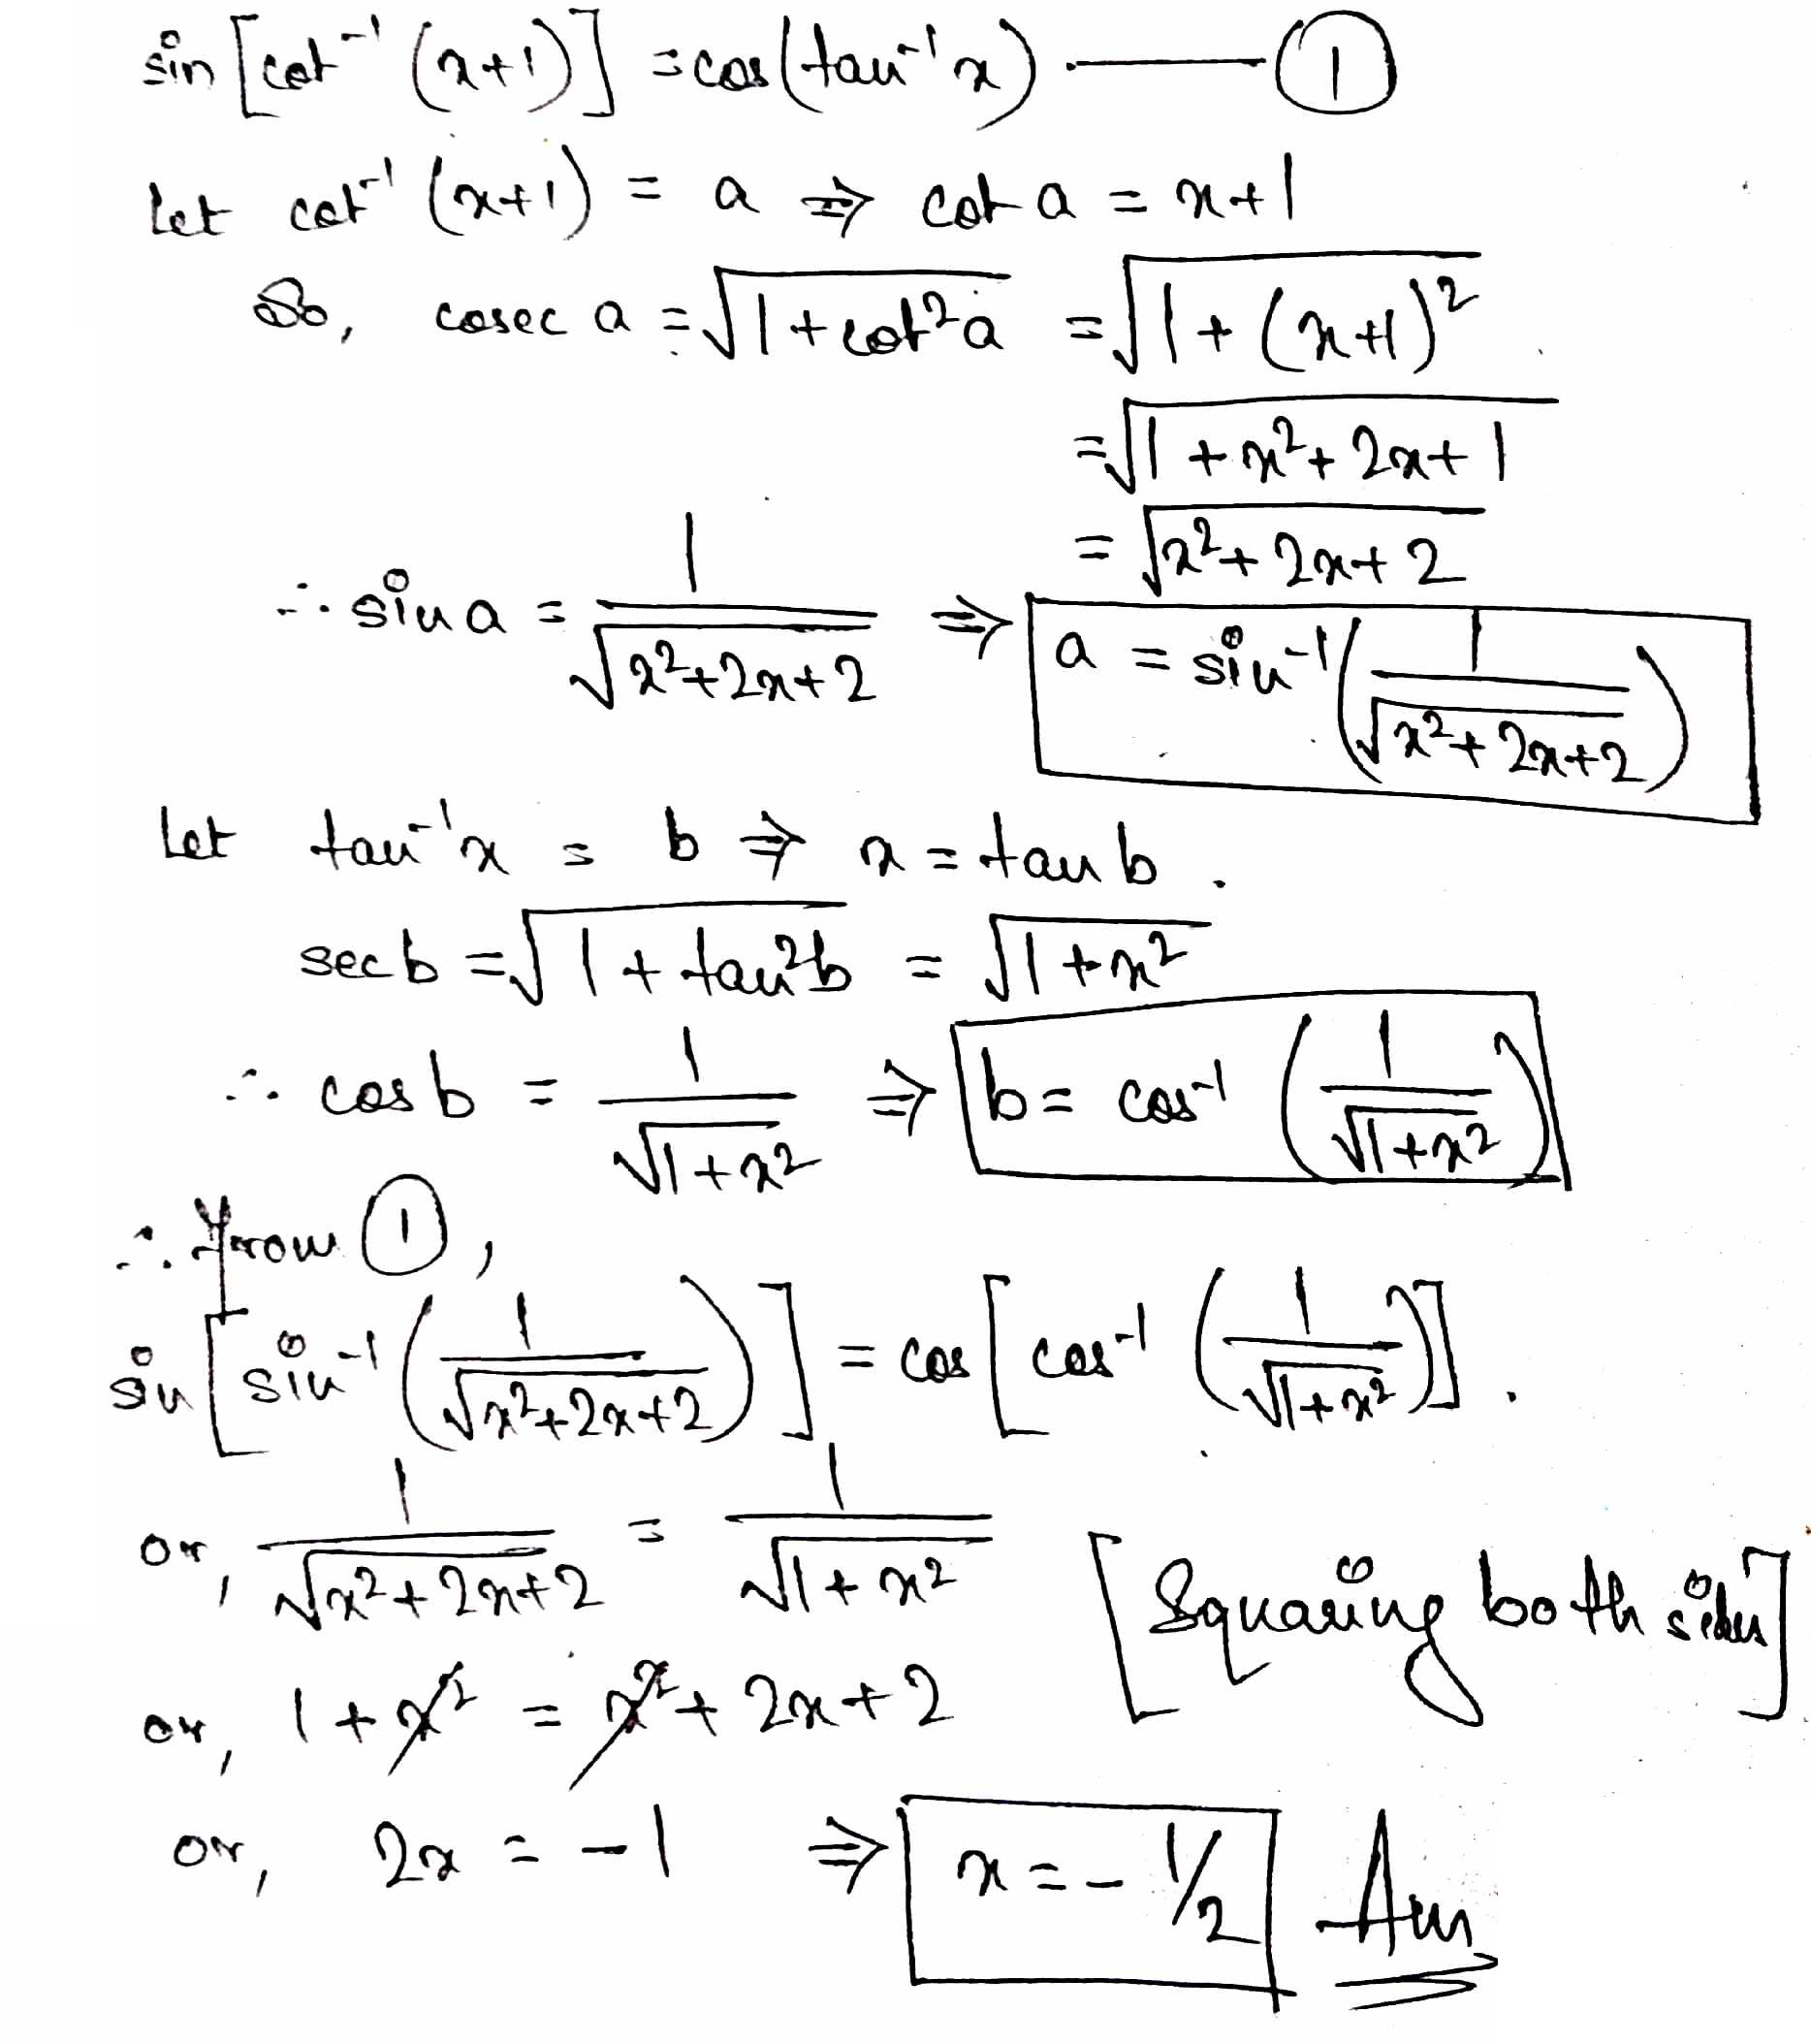 sin [cot⁻¹ (x+1)] = cos(tan⁻¹x) —— ①
Let cot⁻¹ (x+1) = a ⇒ cot a = x+1
So, cosec a = √(1+cot²a) = √(1+(x+1)²)
= √(1+x²+2x+1)
= √(x²+2x+2)
∴ sin a = 1/√(x²+2x+2) ⇒ a = sin⁻¹(1/√(x²+2x+2))
Let tan⁻¹x = b ⇒ x = tan b.
sec b = √(1+tan²b) = √(1+x²)
∴ cos b = 1/√(1+x²) ⇒ b = cos⁻¹(1/√(1+x²))
∴ From ①,
sin [sin⁻¹(1/√(x²+2x+2))] = cos [cos⁻¹(1/√(1+x²))].
or, 1/√(x²+2x+2) = 1/√(1+x²) [Squaring both sides]
or, 1+x² = x²+2x+2
or, 2x = -1 ⇒ x = -1/2 Ans